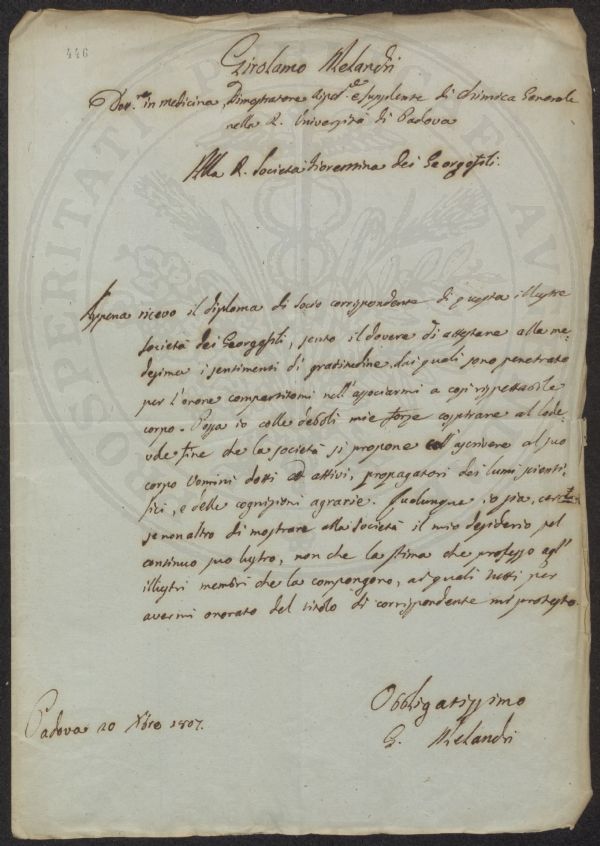 446
Girolamo Melandri
Dott.re in medicina, Dimostratore e supplente di Chimica Generale
nella R. Università di Padova
Alla R. Società Fiorentina dei Georgofili.
Appena ricevo il diploma di socio corrispondente di questa illustre
società dei Georgofili, sento il dovere di attestare alla me-
desima i sentimenti di gratitudine, dai quali sono penetrato
per l'onore compartitomi nell'associarmi a così rispettabile
corpo. Possa io colle deboli mie forze cooptrare al lode-
vole fine che la società si propone coll'ascrivere al suo
corpo Uomini dotti ed attivi, propagatori dei lumi scienti-
fici, e delle cognizioni agrarie. Qualunque io sia,
se non altro di mostrare alla Società il mio desiderio pel
continuo suo lustro, non che la stima che professo agl'
illustri membri che la compongono, ai quali tutti per
avermi onorato del titolo di corrispondente mi protesto.
Obbligatissimo
G. Melandri
Padova 20 Xbre 1807.
PROSPERITATI PUBLICAE AUGENDAE